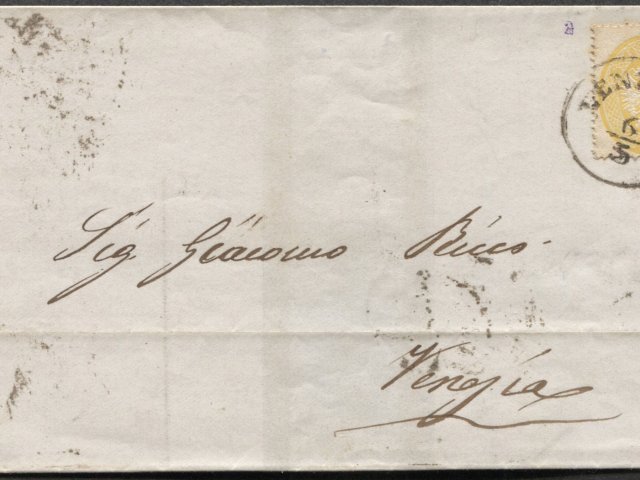 Sig. Giacomo Ricco.
Venezia